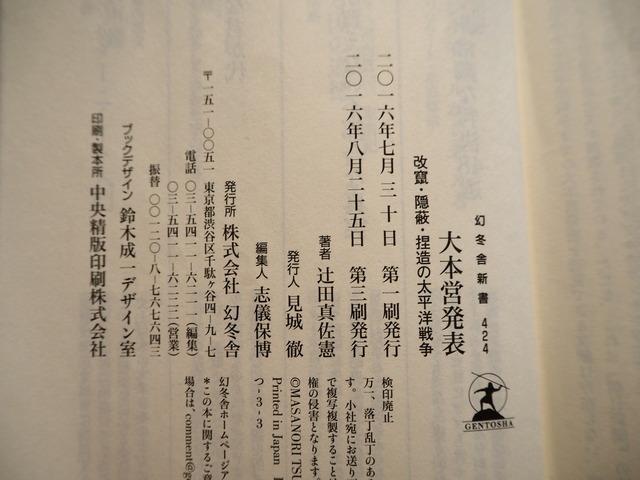 幻冬舎新書 424
大本営発表
改竄・隠蔽・捏造の太平洋戦争
二〇一六年七月三十日 第一刷発行
二〇一六年八月二十五日 第三刷発行
著者 辻田真佐憲
発行人 見城 徹
編集人 志儀保博
発行所 株式会社 幻冬舎
〒一五一-〇〇五一 東京都渋谷区千駄ヶ谷四-九-七
電話 〇三-五四一一-六二一一(編集)
〇三-五四一一-六二二二(営業)
振替 〇〇一二〇-八-七六七六四三
ブックデザイン 鈴木成一デザイン室
印刷・製本所 中央精版印刷株式会社
GENTOSHA
検印廃止
万一、落丁乱丁のあ
す。小社宛にお送り
で複写複製すること
権の侵害となります。
©MASANORI TSU
Printed in Japan
つ-3-3
幻冬舎ホームページア
*この本に関するご意
場合は、comment@